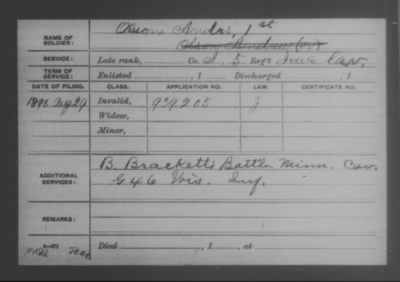 NAME OF SOLDIER: Olson Anders, 1st
Olson Andrew
SERVICE: Late rank, Co. I, 5 Reg't Iowa Cav.
TERM OF SERVICE: Enlisted , 1 Discharged , 1
DATE OF FILING. CLASS. APPLICATION NO. LAW. CERTIFICATE NO.
1890 Aug 29 Invalid, 929205 J
Widow,
Minor,
ADDITIONAL SERVICES: B. Brackett's Battln Minn. Cav.
G 46 Wis. Inf.
REMARKS:
Died , 1 , at